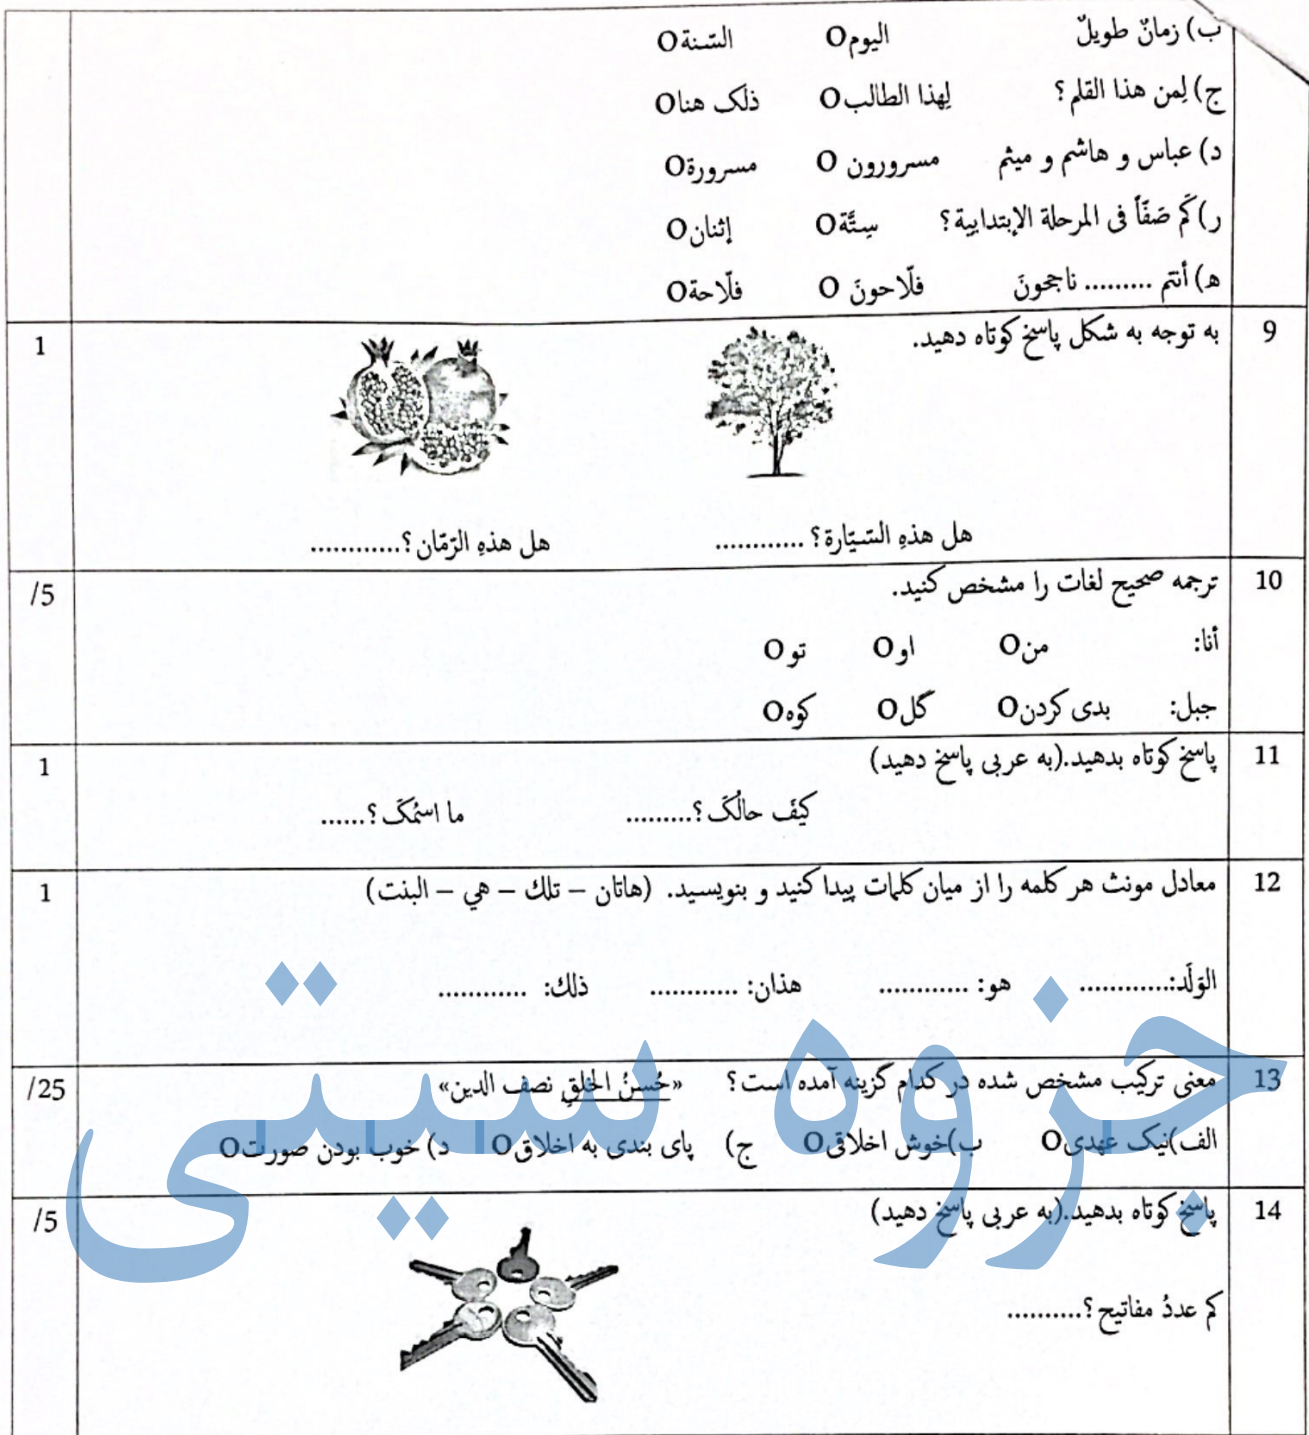 ب) زمانٌ طویلٌ الیوم O السّنة O
ج) لِمن هذا القلم؟ لِهذا الطالب O ذلک هنا O
د) عباس و هاشم و میثم مسرورون O مسرورة O
ر) کَم صَفّاً فی المرحلة الإبتدایية؟ سِتَّة O إثنان O
ه) أنتم ......... ناجحونَ فلّاحونَ O فلّاحة O
9 به توجه به شکل پاسخ کوتاه دهید. 1
هل هذهِ السّیّارة؟ ............ هل هذهِ الرّمّان؟............
10 ترجمه صحیح لغات را مشخص کنید. /5
أنا: من O او O تو O
جبل: بدی کردن O گل O کوه O
11 پاسخ کوتاه بدهید.(به عربی پاسخ دهید) 1
کَیْفَ حالُکَ؟......... ما اسمُکَ؟......
12 معادل مونث هر کلمه را از میان کلمات پیدا کنید و بنویسید. (هاتان – تلك – هي – البنت) 1
الوَلَد:............ هو: ............ هذان: ............ ذلك: ............
13 معنی ترکیب مشخص شده در کدام گزینه آمده است؟ «حُسنُ الخلقِ نصف الدین» /25
الف)نیک عهدی O ب)خوش اخلاقی O ج) پای بندی به اخلاق O د) خوب بودن صورت O
14 پاسخ کوتاه بدهید.(به عربی پاسخ دهید) /5
کم عددُ مفاتیح؟..........
جزوه سیتی